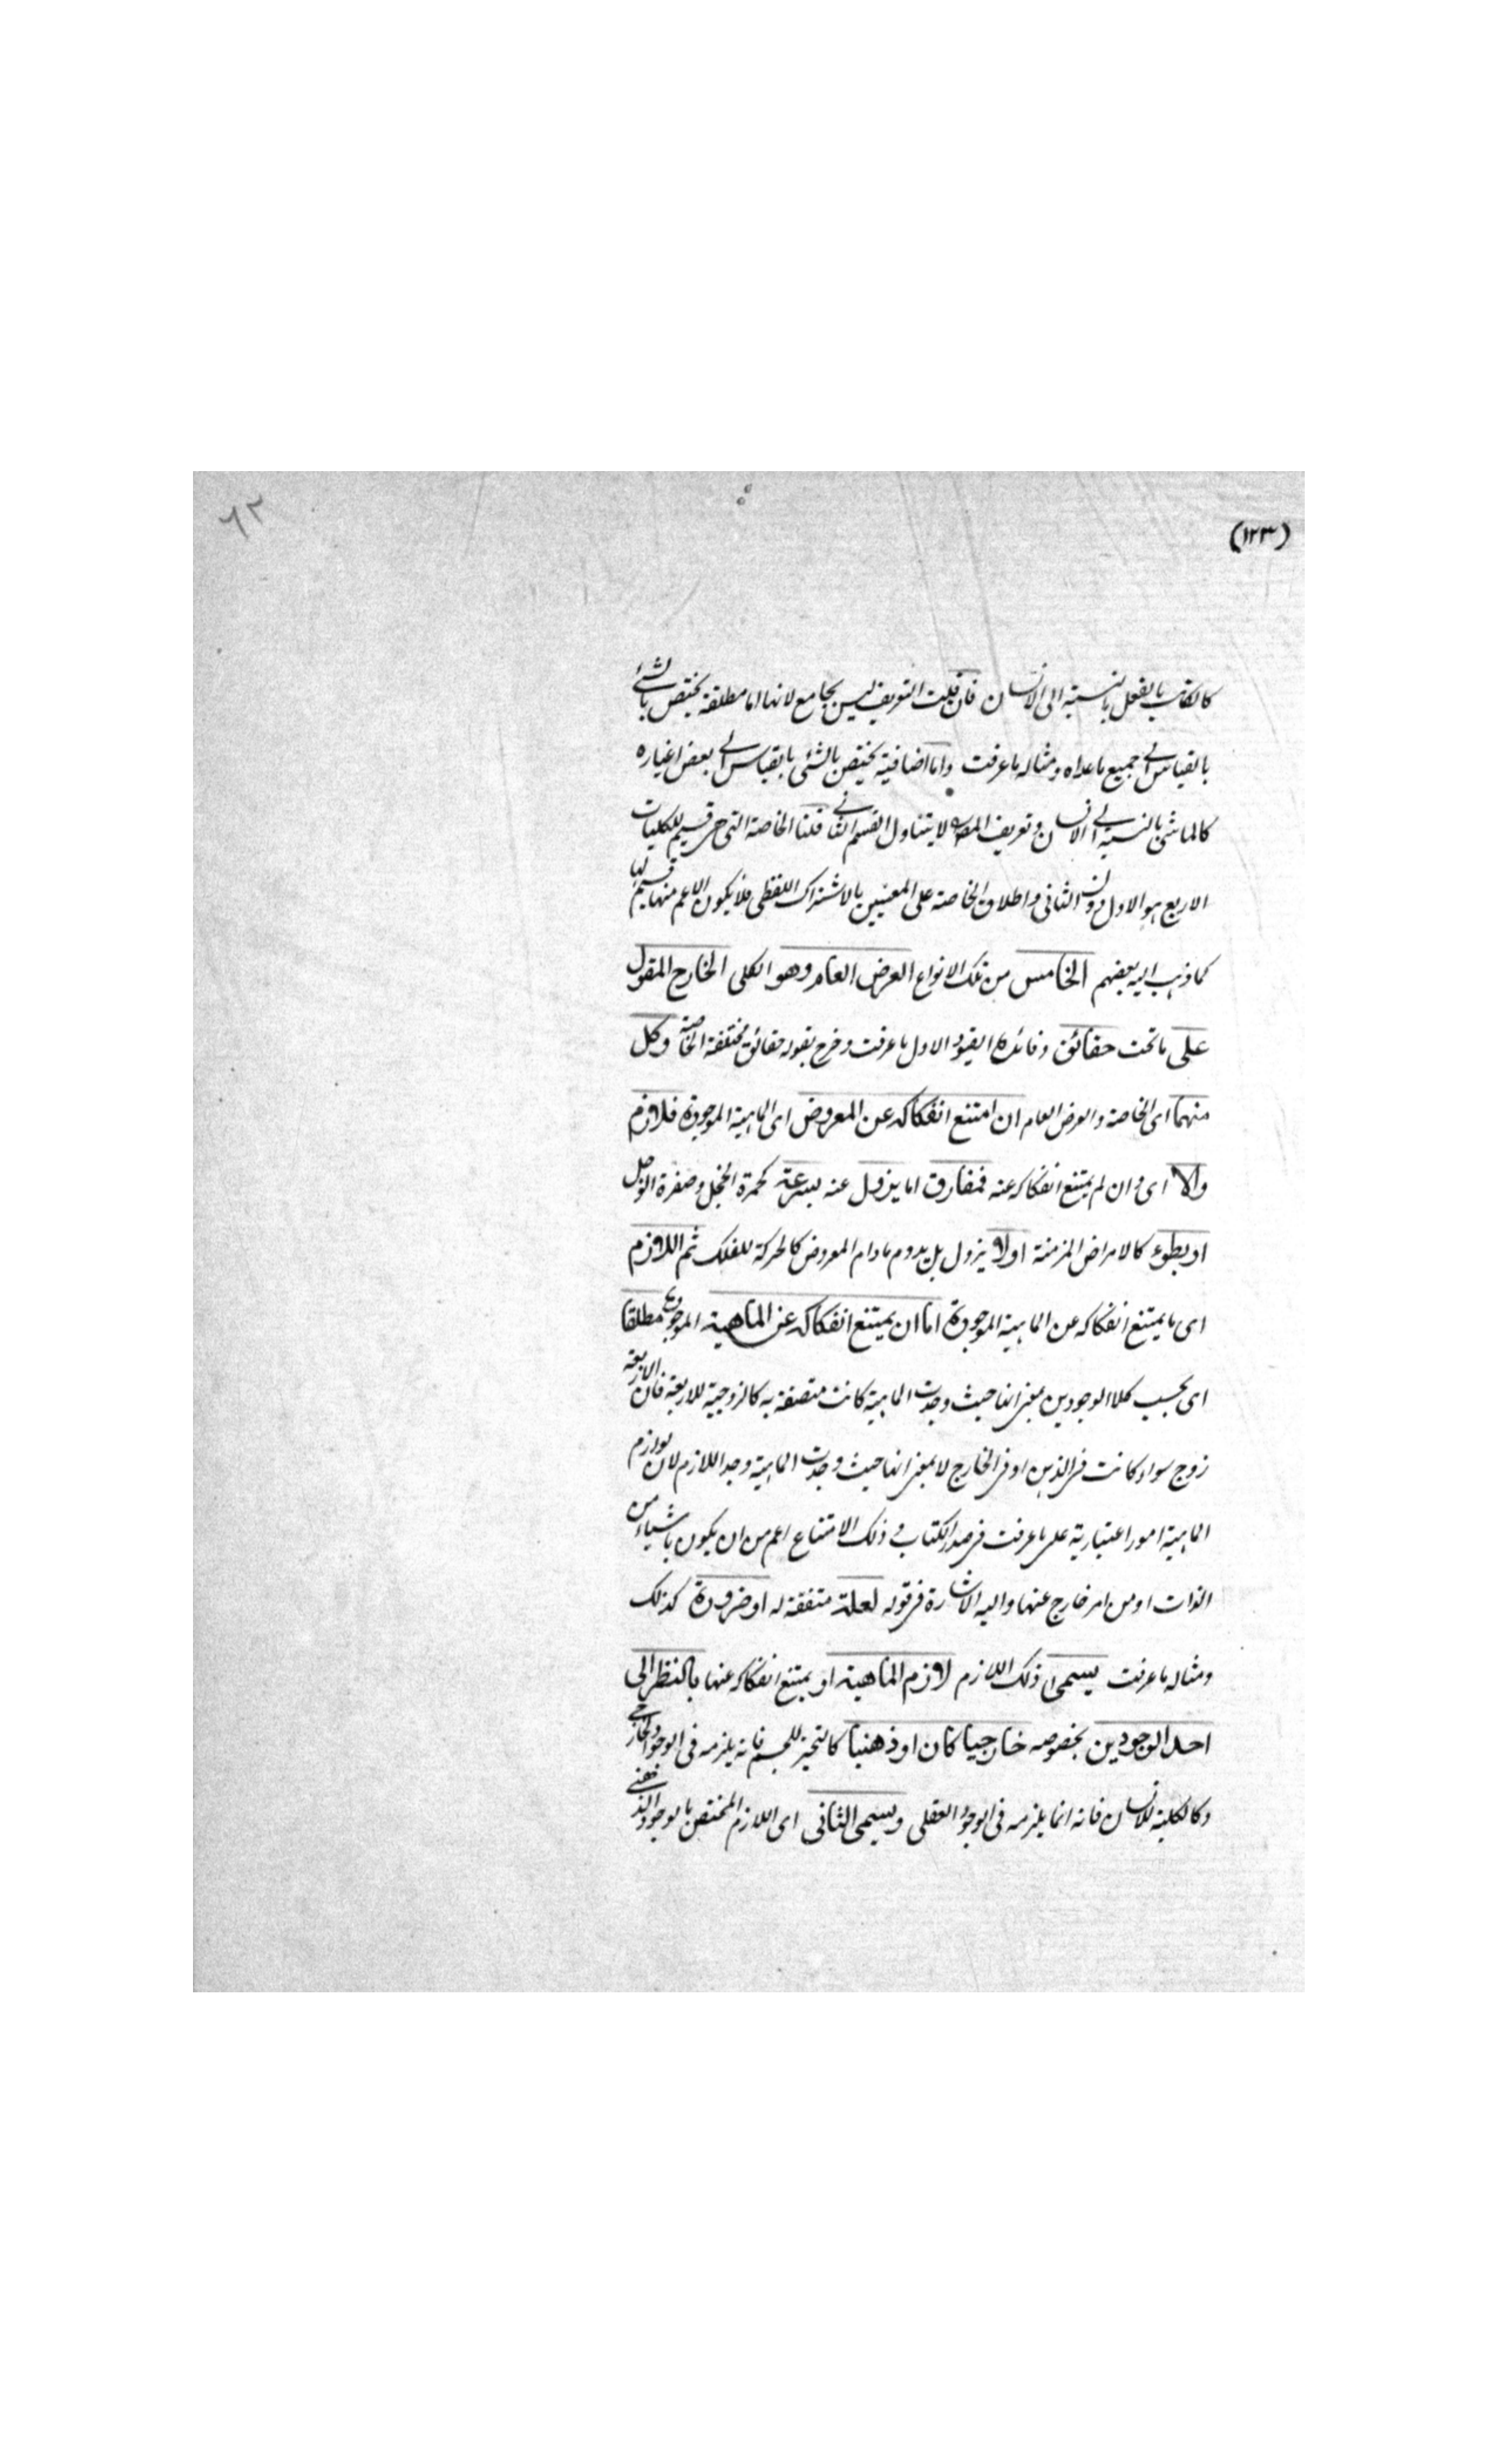 ٦٢
(١٢٣)
كالكاتب بالفعل بالنسبة الى الانسان فان قلت التعريف ليس بجامع لانها اما مطلقة يختص بالشئ
بالقياس الى جميع ما عداه ومثاله ما عرفت واما اضافية يختص بالشئ بالقياس الى بعض اغياره
كالماشى بالنسبة الى الانسان وتعريف المص لا يتناول القسم الثانى قلنا الخاصة التى هى قسيم للكليات
الاربع هو الاول دون الثانى واطلاق الخاصة على المعنيين بالاشتراك اللفظى فلا يكون الاعم منها قسيم لها
كما ذهب اليه بعضهم الخامس من تلك الانواع العرض العام وهو الكلى الخارج المقول
على ما تحت حقائق وفائدة القيود الاول ما عرفت وخرج بقوله حقائق مختلفة الخاصة وكل
منهما اى الخاصة والعرض العام ان امتنع انفكاكه عن المعروض اى الماهية الموجودة فلازم
والا اى وان لم يمتنع انفكاكه عنه فمفارق اما يزول عنه بسرعة كحمرة الخجل وصفرة الوجل
او بطوء كالامراض المزمنة اولا يزول بل يدوم ما دام المعروض كالحركة للفلك ثم اللازم
اى ما يمتنع انفكاكه عن الماهية الموجودة اما ان يمتنع انفكاكه عن الماهية الموجودة مطلقا
اى بحسب كلا الوجودين بمعنى انها حيث وجدت الماهية كانت متصفة به كالزوجية للاربعة فان الاربعة
زوج سواء كانت فى الذهن او فى الخارج لا بمعنى انها حيث وجدت الماهية وجد اللازم لان لوازم
الماهية امور اعتبارية على ما عرفت فى صدر الكتاب وذلك الامتناع اعم من ان يكون باشياء من
الذات او من امر خارج عنها واليه الاشارة فى قوله لعلة متفقة له او ضرورة كذلك
ومثاله ما عرفت يسمى ذلك اللازم لازم الماهية او يمتنع انفكاكه عنها بالنظر الى
احد الوجودين بخصوصه خارجيا كان او ذهنيا كالتحيز للجسم فانه يلزمه فى الوجود الخارجى
وكالكلية للانسان فانه انما يلزمه فى الوجود العقلى ويسمى الثانى اى اللازم المختص بالوجود الذهنى